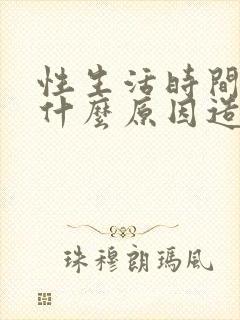 性生活時間
什麼原因造
珠穆朗瑪風